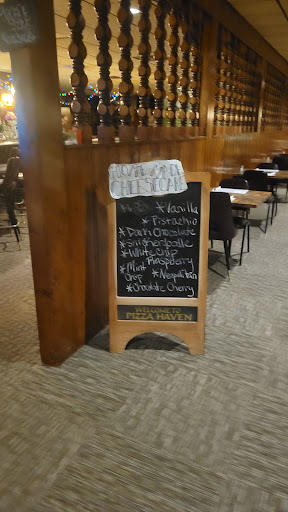 HOMEMADE
CHEESECAKE
*Vanilla
*Pistachio
*Dark Chocolate
*Snickerdoodle
*White Chip
Raspberry
*Mint
Chip
*Neapolitan
*Chocolate Cherry
WELCOME TO
PIZZA HAVEN